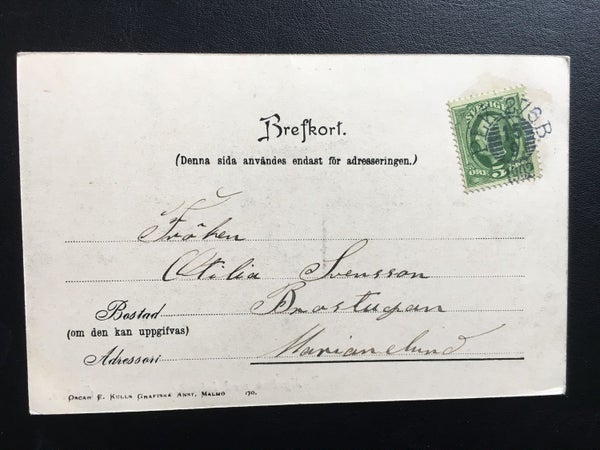 Brefkort.
(Denna sida användes endast för adresseringen.)
SVERIGE
ÖRE 5
Fröken
Otilia Svensson
Bostad Brostugan
(om den kan uppgifvas)
Adressort Mariannelund
OSCAR E. KULLS GRAFISKA ANST. MALMÖ 170.